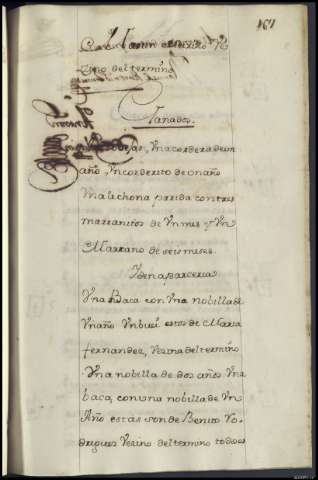 161
zino del termino
Ganados.
ovejas, Vna cordera de un
año, Vn corderito de un año
Vna lechona parida con tres
marranitos de Vn mes y Vn
Marrano de seis meses.
Idenaparceria
Vna Baca con Vna nobilla de
Vn año Vn buei estos de Maria
fernandez, Vezina del termino
Vna nobilla de dos años Vna
baca, con una nobilla de Vn
Año estas son de Benito Ro-
driguez Vezino del termino todos